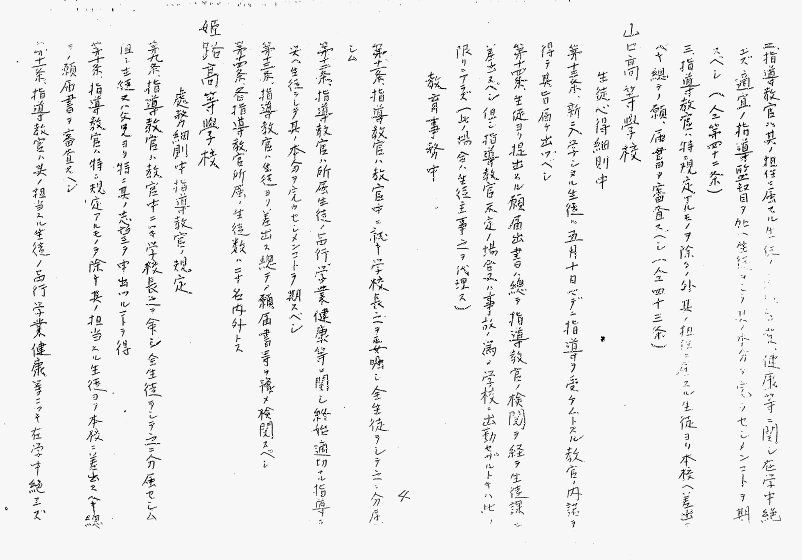 二、指導教官ハ其ノ担任ニ属スル生徒ノ 業、健康等ニ関シ在学中絶
エズ適宜ノ指導監督ヲ加ヘ生徒ヲシテ其ノ本分ヲ完ウセシメンコトヲ期
スベシ（仝第四十二条）
三、指導教官ハ特ニ規定アルモノヲ除クノ外其ノ担任ニ属スル生徒ヨリ本校ヘ差出ス
ベキ総テノ願届書ヲ審査スベシ（仝四十三条）
山口高等學校
生徒心得細則中
第十三条 新ニ入学シタル生徒ハ五月十日迄ニ指導ヲ受ケントスル教官ノ内諾ヲ
得テ其旨届ケ出ヅベシ
第十四条 生徒ヨリ提出スル願届出書ハ総テ指導教官ノ検閲ヲ経テ生徒課ニ
差出スベシ但シ指導教官未定ノ場合又ハ事故ノ為メ学校ニ出勤セザルトキハ此ノ
限リニアラズ（此ノ場合ハ生徒主事之ヲ代理ス）
教育事務中
第十条 指導教官ハ教官中ニ就キ学校長之ヲ委嘱シ全生徒ヲシテ之ニ分属セ
シム
第十二条 指導教官ハ所属生徒ノ品行学業健康等ニ関シ終始適切ナル指導ヲ
与ヘ生徒ヲシテ其ノ本分ヲ完ウセシメンコトヲ期スベシ
第十三条 指導教官ハ生徒ヨリ差出ス総テノ願届書等ヲ豫メ検閲スベシ
第十四条 各指導教官所属ノ生徒数ハ二十名内外トス
姫路高等學校
處務細則中指導教官ノ規定
第九条 指導教官ハ教官中ニツキ学校長之ヲ命ジ全生徒ヲシテ之ニ分属セシム
但シ生徒又ハ父兄ヨリ特ニ其ノ志望ヲ申出ヅルコトヲ得
第十条 指導教官ハ特ニ規定アルモノヲ除キ其ノ担当スル生徒ヨリ本校ニ差出スベキ総
テノ願届書ヲ審査スベシ
第十一条 指導教官ハ其ノ担当スル生徒ノ品行学業健康等ニツキ在学中絶エズ
4